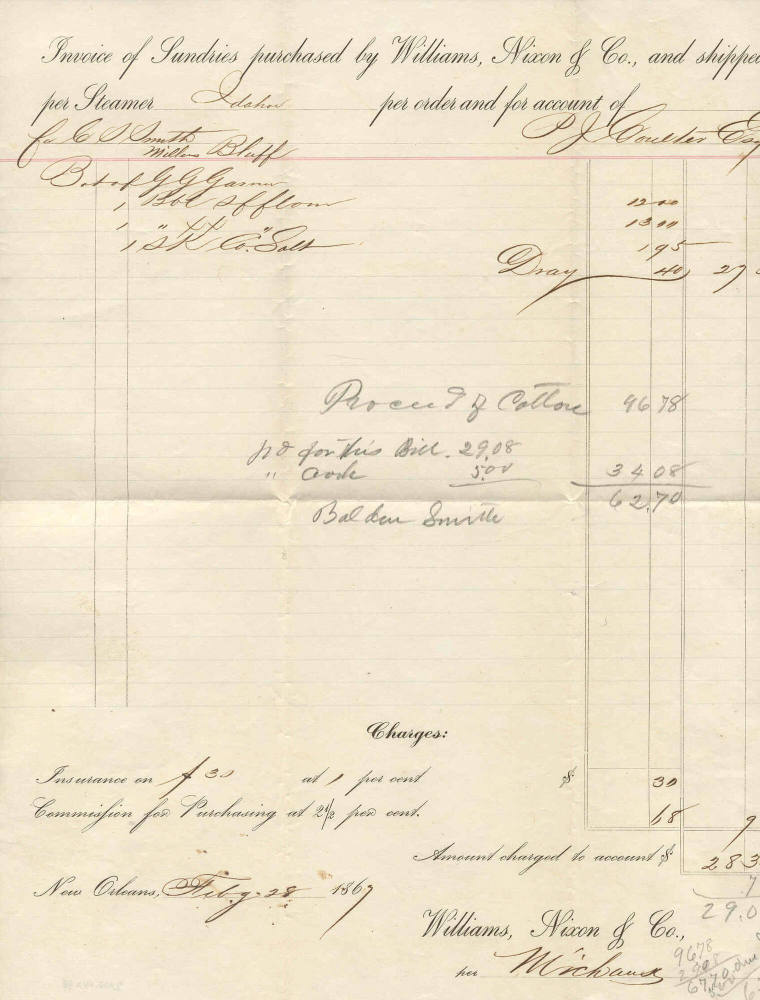 Invoice of Sundries purchased by Williams, Nixon & Co., and shipped
per Steamer Idaho per order and for account of
P J Coulter Esq
for C S Smith
Millers Bluff
Bot of G G Garner
1 Bbl Sf flour 12 00
1 " XX " 13 00
1 SK Co. Salt 1 95
Dray 40 27
Proceed of Cotton 96 78
pd for this Bill. 29,08
" 5.00 34 08
62,70
Bal due Smith
Charges:
Insurance on $ 30 at 1 per cent $ 30
Commission for Purchasing at 2 1/2 per cent. 68 9
Amount charged to account $ 28 3
7
New Orleans, Feby 28 1867
29.0
Williams, Nixon & Co.,
per Michaux
9678
2908
67.70 due